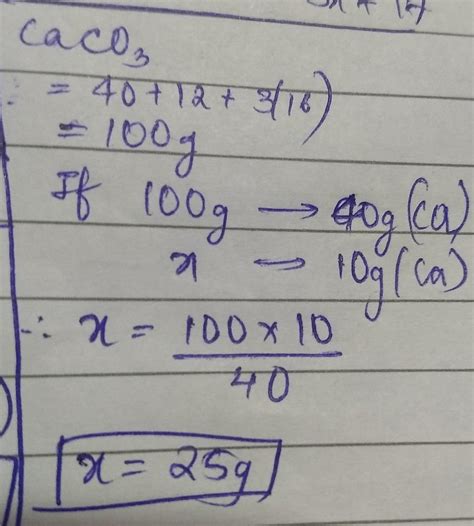 CaCO₃
∴ = 40 + 12 + 3(16)
= 100g
If 100g → 40g (Ca)
x — 10g (Ca)
∴ x = 100 × 10
40
x = 25g